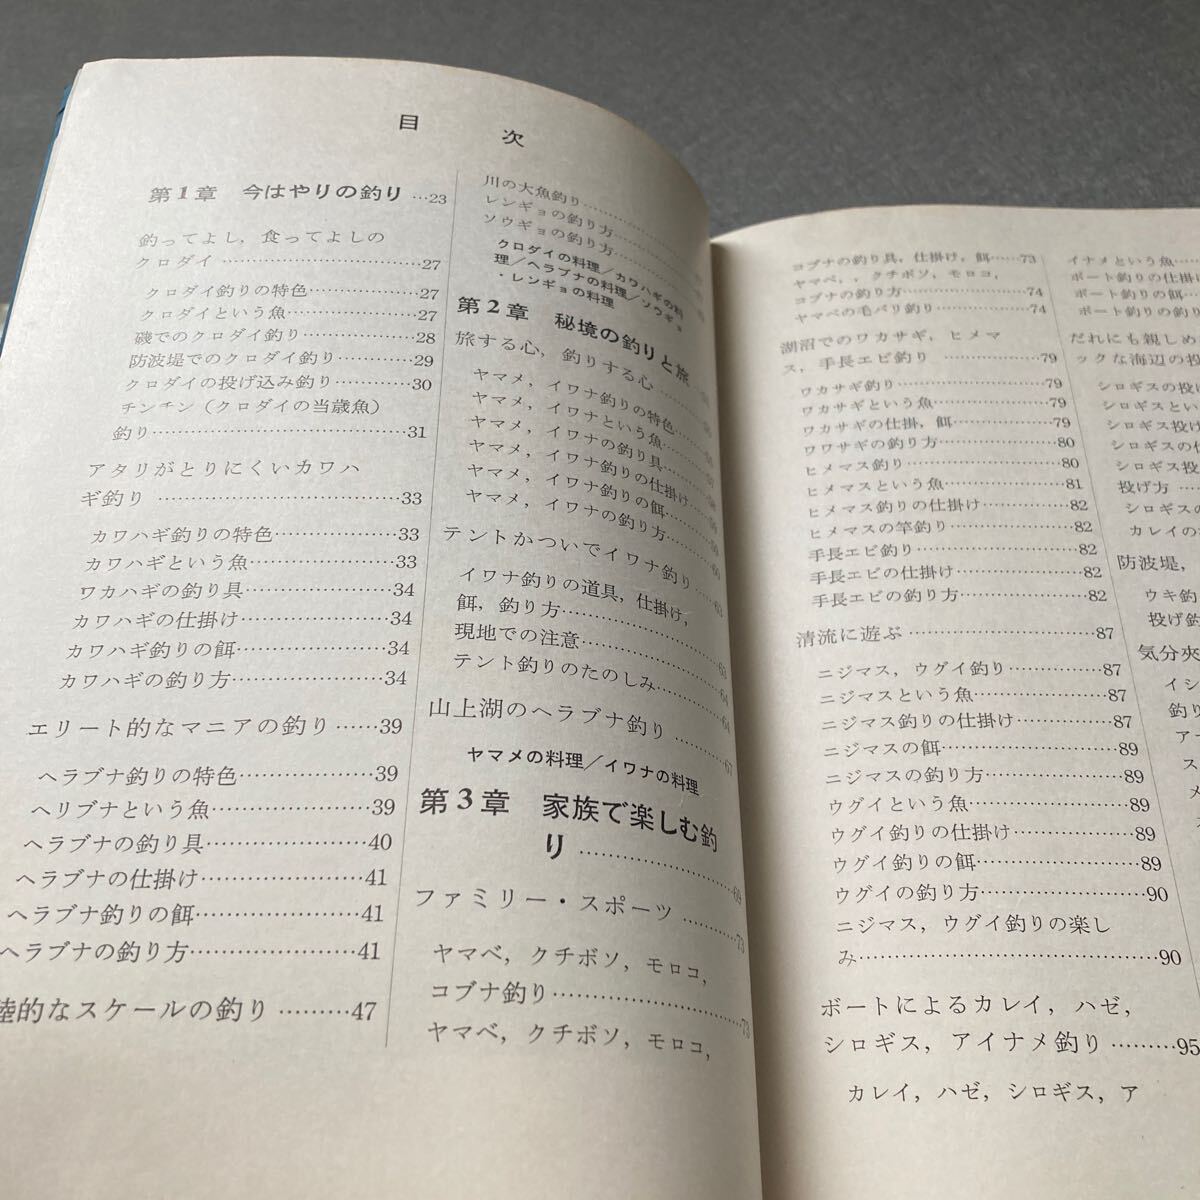 目次
第1章 今はやりの釣り…23
釣ってよし，食ってよしの
クロダイ……………………27
クロダイ釣りの特色…………27
クロダイという魚……………27
磯でのクロダイ釣り…………28
防波堤でのクロダイ釣り……29
クロダイの投げ込み釣り………30
チンチン（クロダイの当歳魚）
釣り……………………………31
アタリがとりにくいカワハ
ギ釣り……………………33
カワハギ釣りの特色……………33
カワハギという魚………………33
ワカハギの釣り具………………34
カワハギの仕掛け………………34
カワハギ釣りの餌………………34
カワハギの釣り方………………34
エリート的なマニアの釣り……39
ヘラブナ釣りの特色……………39
ヘリブナという魚………………39
ヘラブナの釣り具………………40
ヘラブナの仕掛け………………41
ヘラブナ釣りの餌………………41
ヘラブナの釣り方………………41
陸的なスケールの釣り………47
川の大魚釣り……………
レンギョの釣り方…………
ソウギョの釣り方…………
クロダイの料理／カワハギの料
理／ヘラブナの料理／ソウギョ
・レンギョの料理
第2章 秘境の釣りと旅
旅する心，釣りする心……
ヤマメ，イワナ釣りの特色……
ヤマメ，イワナという魚……
ヤマメ，イワナの釣り具……
ヤマメ，イワナ釣りの仕掛け……
ヤマメ，イワナ釣りの餌……
ヤマメ，イワナの釣り方……
テントかついでイワナ釣り……63
イワナ釣りの道具，仕掛け，
餌，釣り方……………63
現地での注意……………64
テント釣りのたのしみ……64
山上湖のヘラブナ釣り………67
ヤマメの料理／イワナの料理
第3章 家族で楽しむ釣
り……………………69
ファミリー・スポーツ………73
ヤマベ，クチボソ，モロコ，
コブナ釣り……………………73
ヤマベ，クチボソ，モロコ，
コブナの釣り具，仕掛け，餌……73
ヤマベ，，クチボソ，モロコ，
コブナの釣り方……………74
ヤマベの毛バリ釣り…………74
湖沼でのワカサギ，ヒメマ
ス，手長エビ釣り…………79
ワカサギ釣り…………………79
ワカサギという魚……………79
ワカサギの仕掛，餌…………79
ワワサギの釣り方……………80
ヒメマス釣り…………………80
ヒメマスという魚……………81
ヒメマス釣りの仕掛け………82
ヒメマスの竿釣り……………82
手長エビ釣り…………………82
手長エビの仕掛け……………82
手長エビの釣り方……………82
清流に遊ぶ……………………87
ニジマス，ウグイ釣り………87
ニジマスという魚……………87
ニジマス釣りの仕掛け………87
ニジマスの餌…………………89
ニジマスの釣り方……………89
ウグイという魚………………89
ウグイ釣りの仕掛け…………89
ウグイ釣りの餌………………89
ウグイの釣り方………………90
ニジマス，ウグイ釣りの楽し
み………………………………90
ボートによるカレイ，ハゼ，
シロギス，アイナメ釣り………95
カレイ，ハゼ，シロギス，ア
イナメという魚……
ボート釣りの仕掛
ボート釣りの餌……
ボート釣りの釣り
だれにも親しめ
ックな海辺の投
シロギスの投
シロギスとい
シロギス投げ
シロギスの仕
シロギス投
投げ方……
シロギスの
カレイの
防波堤，
ウキ釣
投げ釣
気分爽
イシ
釣り
アー
ス
メ